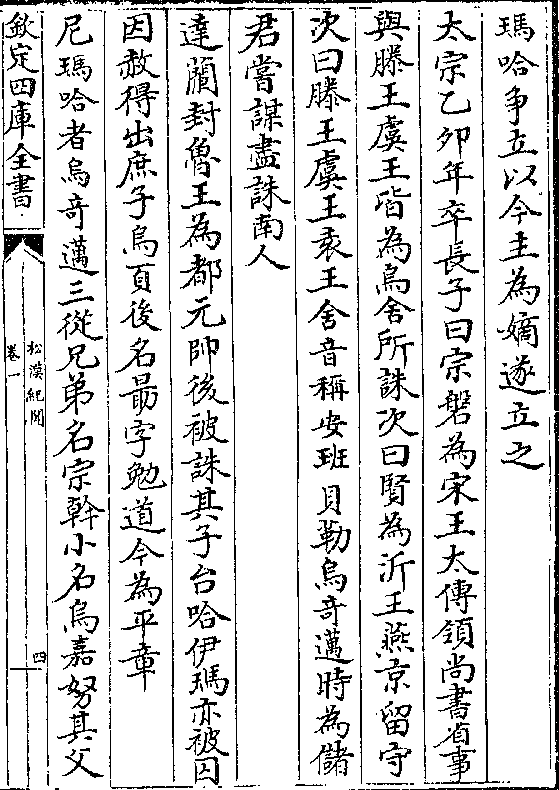 瑪哈爭立以今主為嫡遂立之
太宗乙卯年卒長子曰宗磐為宋王太傅領尚書省事
與滕王虞王皆為烏舍所誅次曰賢為沂王燕京留守
次曰滕王虞王袞王舍音稱安班貝勒烏奇邁時為儲
君嘗謀盡誅南人
達蘭封魯王為都元帥後被誅其子台哈伊瑪亦被囚
因赦得出庶子烏頁後名朂字勉道今為平章
尼瑪哈者烏奇邁三從兄弟名宗幹小名烏嘉努其父
欽定四庫全書
松漠紀聞
卷一
四